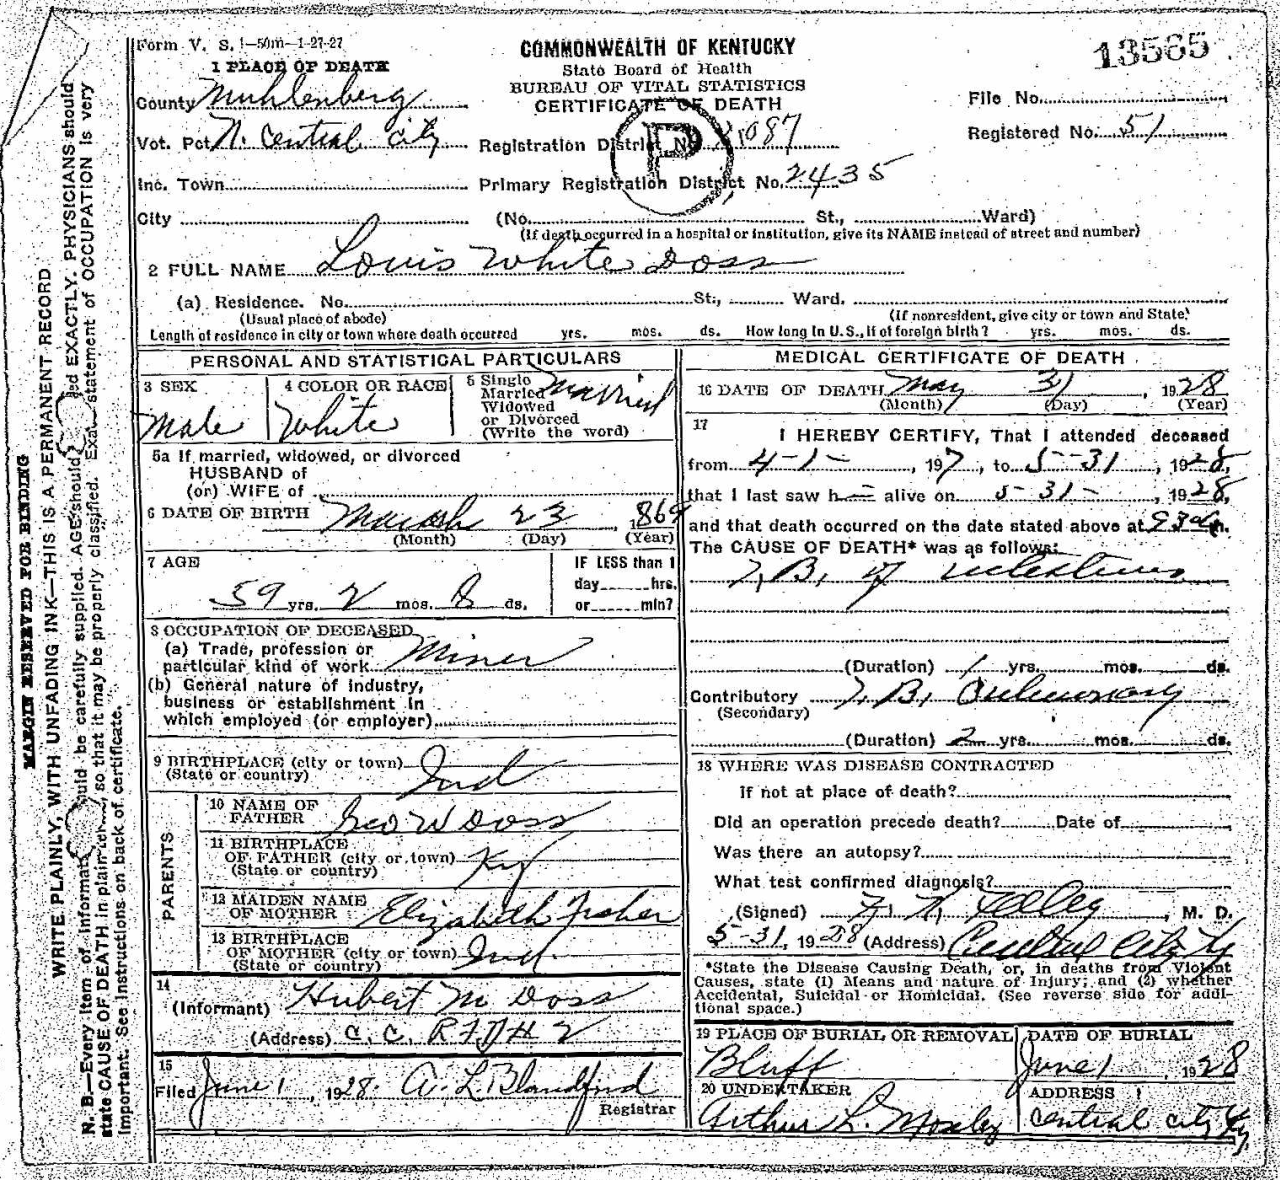 Form V. S. 1-50m-1-27-27
COMMONWEALTH OF KENTUCKY
13565
1 PLACE OF DEATH
State Board of Health
BUREAU OF VITAL STATISTICS
CERTIFICATE OF DEATH
County Muhlenberg
File No.
Vot. Pct N. Central City
Registration District No. 1087
Registered No. 51
P
Inc. Town
Primary Registration District No. 2435
City (No. St., Ward)
(If death occurred in a hospital or institution, give its NAME instead of street and number)
2 FULL NAME Louis White Doss
(a) Residence. No. St., Ward.
(Usual place of abode) (If nonresident, give city or town and State)
Length of residence in city or town where death occurred yrs. mos. ds. How long in U.S., if of foreign birth? yrs. mos. ds.
PERSONAL AND STATISTICAL PARTICULARS
3 SEX
Male
4 COLOR OR RACE
White
5 Single
Married
Widowed
or Divorced
(Write the word)
Married
5a If married, widowed, or divorced
HUSBAND of
(or) WIFE of
6 DATE OF BIRTH March 23, 1869
(Month) (Day) (Year)
7 AGE
59 yrs. 2 mos. 8 ds.
IF LESS than 1
day hrs.
or min?
8 OCCUPATION OF DECEASED
(a) Trade, profession or
particular kind of work Miner
(b) General nature of industry,
business or establishment in
which employed (or employer)
9 BIRTHPLACE (city or town)
(State or country) Ind
PARENTS
10 NAME OF
FATHER Geo W Doss
11 BIRTHPLACE
OF FATHER (city or town) Ky
(State or country)
12 MAIDEN NAME
OF MOTHER Elizabeth Fisher
13 BIRTHPLACE
OF MOTHER (city or town) Ind.
(State or country)
14
(Informant) Hubert M Doss
(Address) C. C. RFD # 2
15
Filed June 1, 1928. A. L. Blandford
Registrar
MEDICAL CERTIFICATE OF DEATH
16 DATE OF DEATH May 31, 1928
(Month) (Day) (Year)
17
I HEREBY CERTIFY, That I attended deceased
from 4-1-, 197, to 5-31, 1928,
that I last saw h alive on 5-31-, 1928,
and that death occurred on the date stated above at m.
The CAUSE OF DEATH* was as follows:
T. B. of intestines
(Duration) 1 yrs. mos. ds.
Contributory T. B. Pulmonary
(Secondary)
(Duration) 2 yrs. mos. ds.
18 WHERE WAS DISEASE CONTRACTED
If not at place of death?
Did an operation precede death? Date of
Was there an autopsy?
What test confirmed diagnosis?
(Signed) M. D.
5-31, 1928 (Address) Central City Ky
*State the Disease Causing Death, or, in deaths from Violent
Causes, state (1) Means and nature of Injury; and (2) whether
Accidental, Suicidal or Homicidal. (See reverse side for addi-
tional space.)
19 PLACE OF BURIAL OR REMOVAL
Bluff
DATE OF BURIAL
June 1, 1928
20 UNDERTAKER
Arthur L. Mosley
ADDRESS
Central City Ky
MARGIN RESERVED FOR BINDING
WRITE PLAINLY, WITH UNFADING INK—THIS IS A PERMANENT RECORD
N. B.—Every item of information should be carefully supplied. AGE should be stated EXACTLY. PHYSICIANS should
state CAUSE OF DEATH in plain terms, so that it may be properly classified. Exact statement of OCCUPATION is very
important. See instructions on back of certificate.